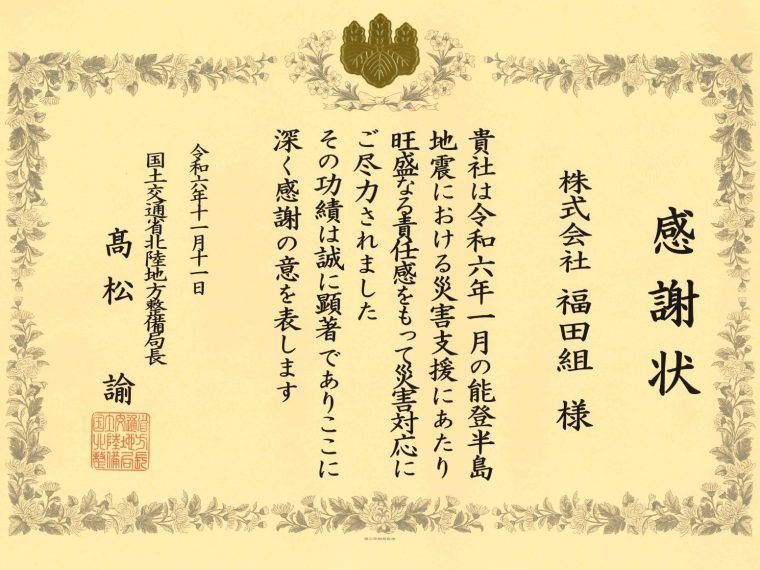 感謝状
株式会社 福田組 様
貴社は令和六年一月の能登半島
地震における災害支援にあたり
旺盛なる責任感をもって災害対応に
ご尽力されました
その功績は誠に顕著でありここに
深く感謝の意を表します
令和六年十一月十一日
国土交通省北陸地方整備局長
髙松 諭